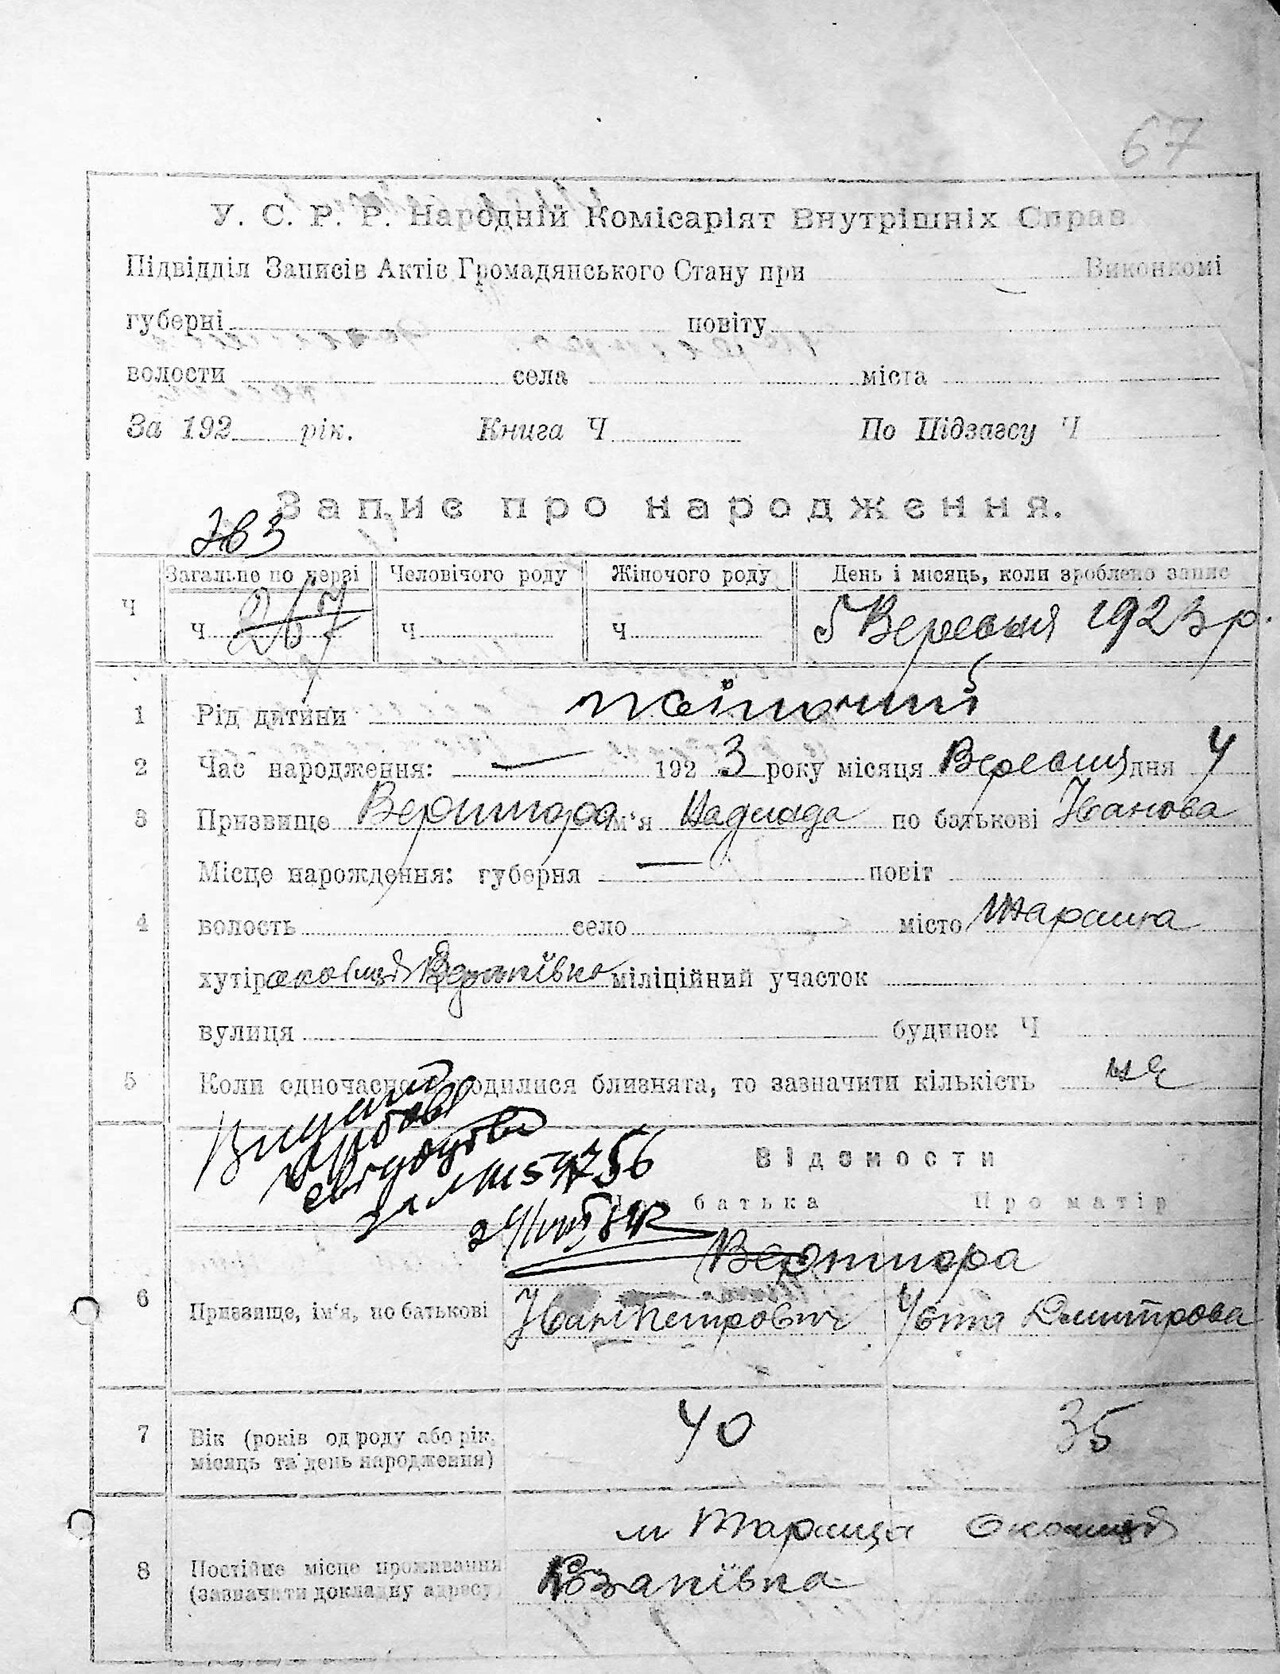 67
У. С. Р. Р. Народній Комісаріят Внутрішніх Справ
Підвідділ Записів Актів Громадянського Стану при Виконкомі
губерні повіту
волости села міста
За 192 рік. Книга Ч По Підзагсу Ч
Запис про народження.
Ч Загальне по черзі Человічого роду Жіночого роду День і місяць, коли зроблено запис
Ч 267 Ч Ч 5 Вересня 1923 р.
1 Рід дитини жіночий
2 Час народження: — 1923 року місяця Вересня дня 4
3 Призвище Вернигора ім'я Надежда по батькові Іванова
Місце нарождення: губерня — повіт
4 волость село місто Тараща
хутір околиця міліційний участок
вулиця будинок Ч
5 Коли одночасно родилися близнята, то зазначити кількість не
Відомости
Про батька Про матір
6 Призвище, ім'я, по батькові Іван Петрович Дмитрова
7 Вік (років од роду або рік, місяць та день народження) 40 35
8 Постійне місце проживання (зазначити докладну адресу) м Тараща Околиця